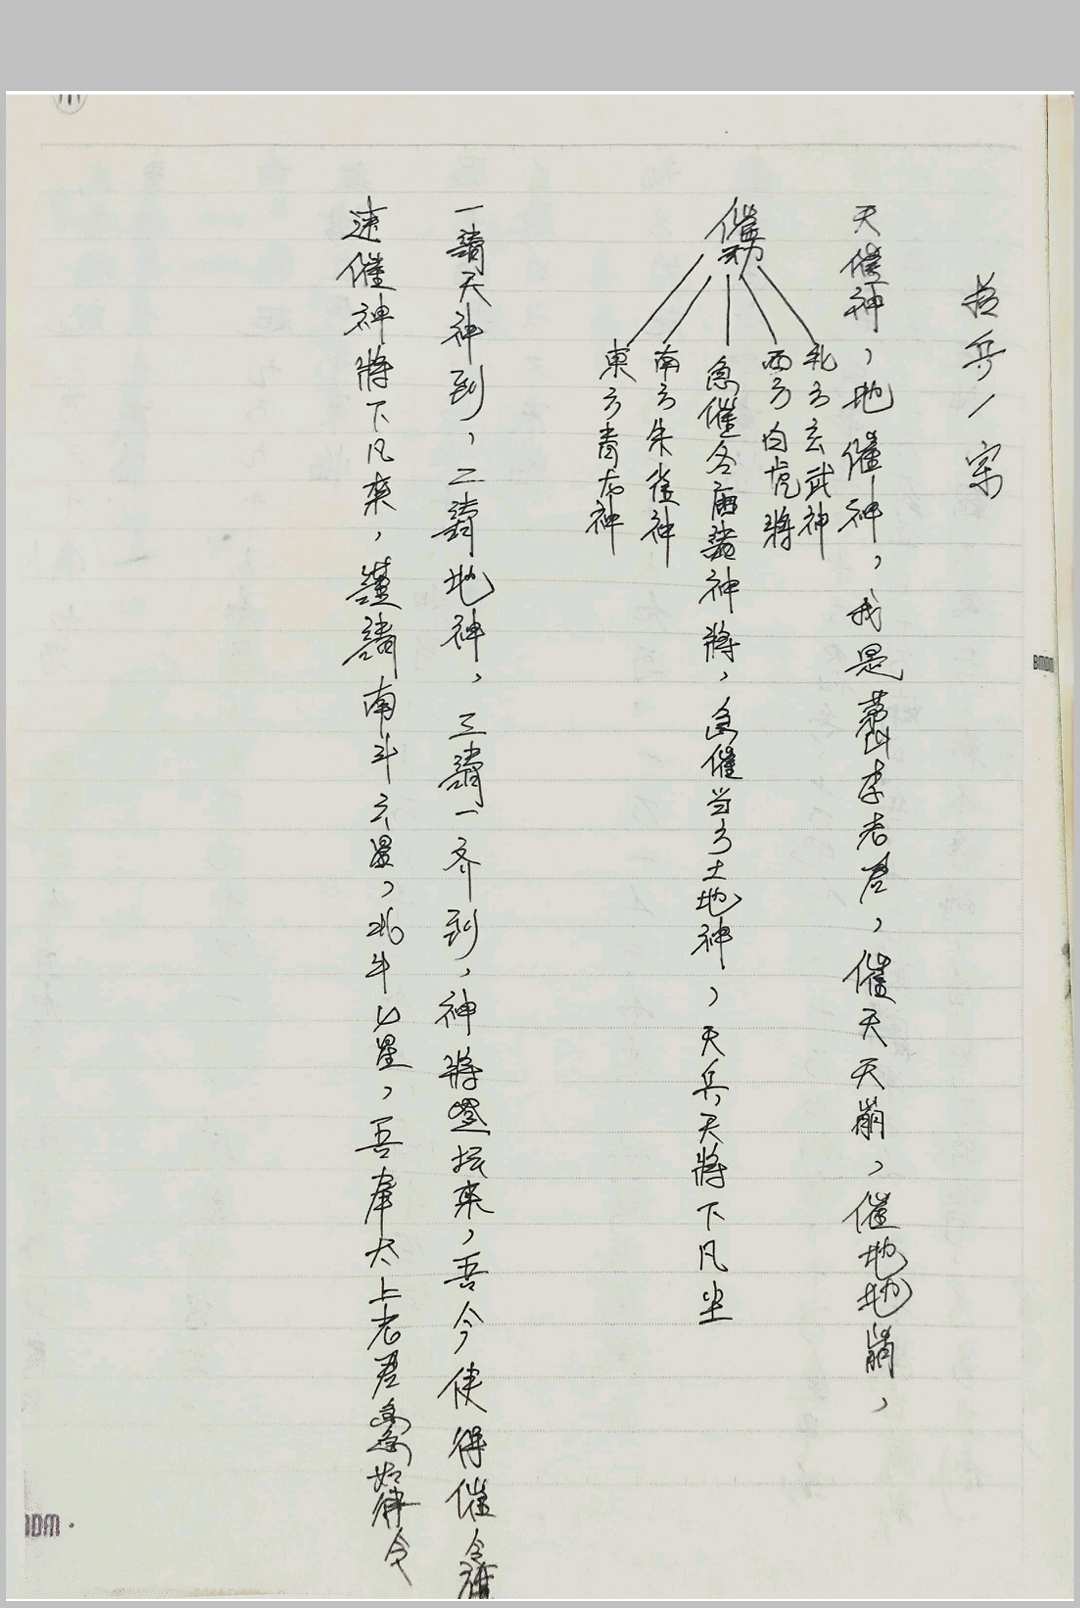 招兵一宗
天催神，地催神，我是茅山李老君，催天天崩，催地地崩，
催动
北方玄武神
西方白虎将
急催各庙諸神將，急催当方土地神，天兵天將下凡坐
南方朱雀神
東方青龙神
一請天神到，二請地神，三請一齐到，神將登坛来，吾今使得催令
速催神將下凡来，謹請南斗六星，北斗七星，吾奉太上老君急急如律令
BMDM